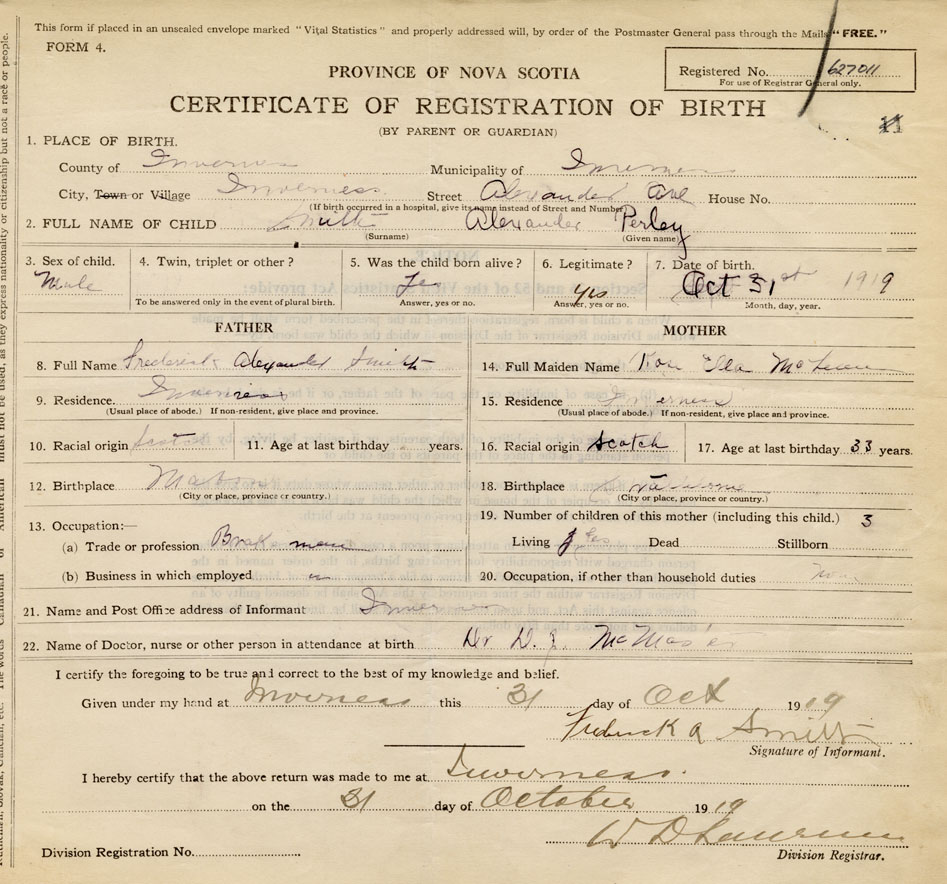 This form if placed in an unsealed envelope marked "Vital Statistics" and properly addressed will, by order of the Postmaster General pass through the Mails "FREE."
FORM 4.
Registered No. 627011
For use of Registrar General only.
PROVINCE OF NOVA SCOTIA
CERTIFICATE OF REGISTRATION OF BIRTH
(BY PARENT OR GUARDIAN)
1. PLACE OF BIRTH.
County of Inverness Municipality of Inverness
City, Town or Village Inverness Street Alexander Ave House No.
(If birth occurred in a hospital, give its name instead of Street and Number)
2. FULL NAME OF CHILD Smith Alexander Perley
(Surname) (Given name)
3. Sex of child. 4. Twin, triplet or other? 5. Was the child born alive? 6. Legitimate? 7. Date of birth.
Male Yes yes Oct 31st 1919
To be answered only in the event of plural birth. Answer, yes or no. Answer, yes or no. Month, day, year.
FATHER MOTHER
8. Full Name Frederick Alexander Smith 14. Full Maiden Name Ella
9. Residence. Inverness 15. Residence Inverness
(Usual place of abode.) If non-resident, give place and province. (Usual place of abode.) If non-resident, give place and province.
10. Racial origin Scotch 11. Age at last birthday years. 16. Racial origin Scotch 17. Age at last birthday 33 years.
12. Birthplace Mabou 18. Birthplace
(City or place, province or country.) (City or place, province or country.)
19. Number of children of this mother (including this child.) 3
13. Occupation:—
(a) Trade or profession man Living Dead Stillborn
(b) Business in which employed 20. Occupation, if other than household duties None
21. Name and Post Office address of Informant Inverness
22. Name of Doctor, nurse or other person in attendance at birth Dr. D. McMaster
I certify the foregoing to be true and correct to the best of my knowledge and belief.
Given under my hand at Inverness this 31 day of Oct 1919
Frederick A Smith
Signature of Informant.
I hereby certify that the above return was made to me at Inverness.
on the 31 day of October 1919
W D Lawrence
Division Registration No. Division Registrar.